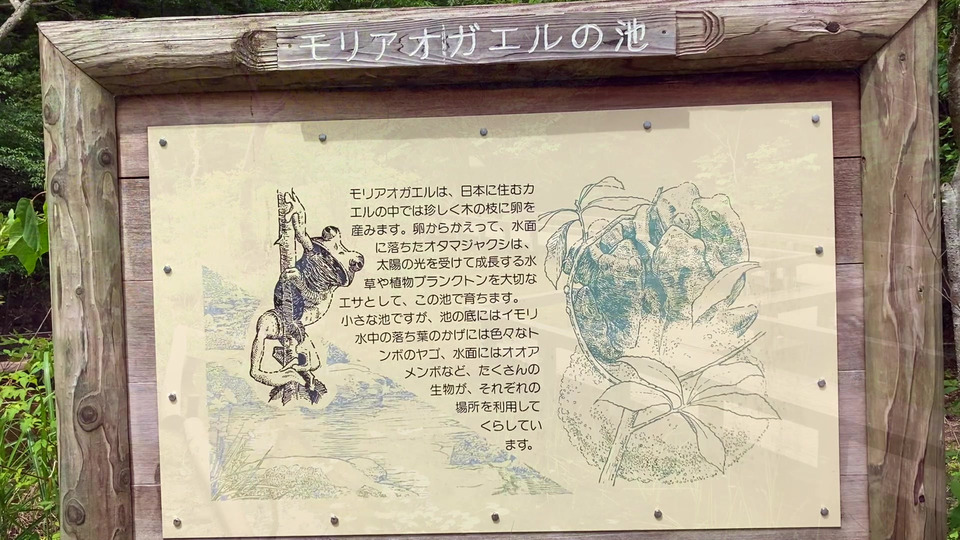 モリアオガエルの池
モリアオガエルは、日本に住むカ
エルの中では珍しく木の枝に卵を
産みます。卵からかえって、水面
に落ちたオタマジャクシは、
太陽の光を受けて成長する水
草や植物プランクトンを大切な
エサとして、この池で育ちます。
小さな池ですが、池の底にはイモリ
水中の落ち葉のかげには色々なト
ンボのヤゴ、水面にはオオア
メンボなど、たくさんの
生物が、それぞれの
場所を利用して
くらしてい
ます。